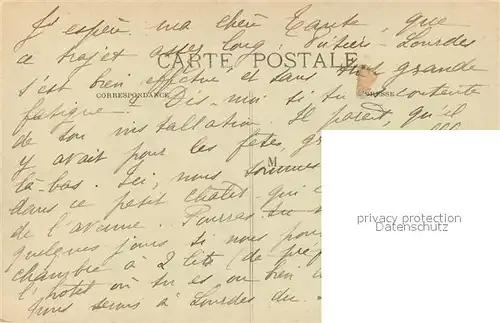 J'espère, ma chère Tante, que
ce trajet assez long, Poitiers-Lourdes
CARTE POSTALE
s'est bien effectué et sans trop grande
CORRESPONDANCE
ADRESSE
fatigue. Dis-moi si tu es contente
de ton installation. Il paraît, qu'il
y avait pour les fêtes,
là-bas. Ici, nous sommes
M
dans ce petit chalet qui
de l'avenue. Pourras-tu
quelques jours si nous
chambre à 2 lits (de préf
l'hôtel où tu es ou bien
Nous serons à Lourdes du
privacy protection
Datenschutz